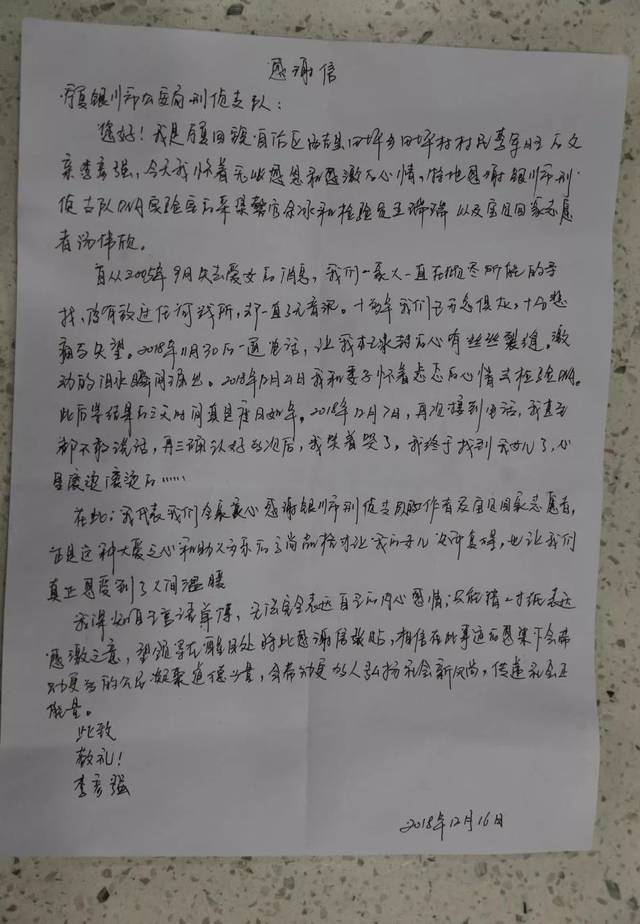 感谢信
宁夏银川市公安局刑侦支队：
您好！我是宁夏回族自治区西吉县田坪乡田坪村村民李
亲李彦强，今天我怀着无比感恩和感激的心情，特地感谢银川市刑
侦支队DNA实验室的 警官 和检验员王 以及宝贝回家志愿
者汤伟欣。
自从2005年9月失去爱女的消息，我们一家人一直在倾尽所能的寻
找，没有放过任何 所，却一直了无音讯。十 年我们已万念俱灰，十分悲
痛与失望。2018年11月30日一通电话，让我 封的心有丝丝裂缝，激
动的泪水瞬间流出。2018年12月 日我和妻子怀着忐忑的心情去检验DNA。
此后等结果的三天时间真是度日如年。2018年12月7日，再次接到电话，我甚至
都不敢说话，再三确认好 次后，我笑着哭了，我终于找到我女儿了，心
是滚烫滚烫的……
在此：我代表我们全家衷心感谢银川市刑侦支队 工作者及宝贝回家志愿者，
正是这种大爱之心和助人为乐的高尚品格才让我的女儿失而复得，也让我们
真正感受到了人间温暖
我深知自己言语单薄，无法完全表达自己的内心感情，只能借一寸纸表达
感激之意，望领导在醒目处将此感谢信张贴，相信在此事迹的感染下会带
动更多的公民凝聚道德力量，会带动更多的人弘扬社会新风尚，传递社会正
能量。
此致
敬礼！
李彦强
2018年12月16日